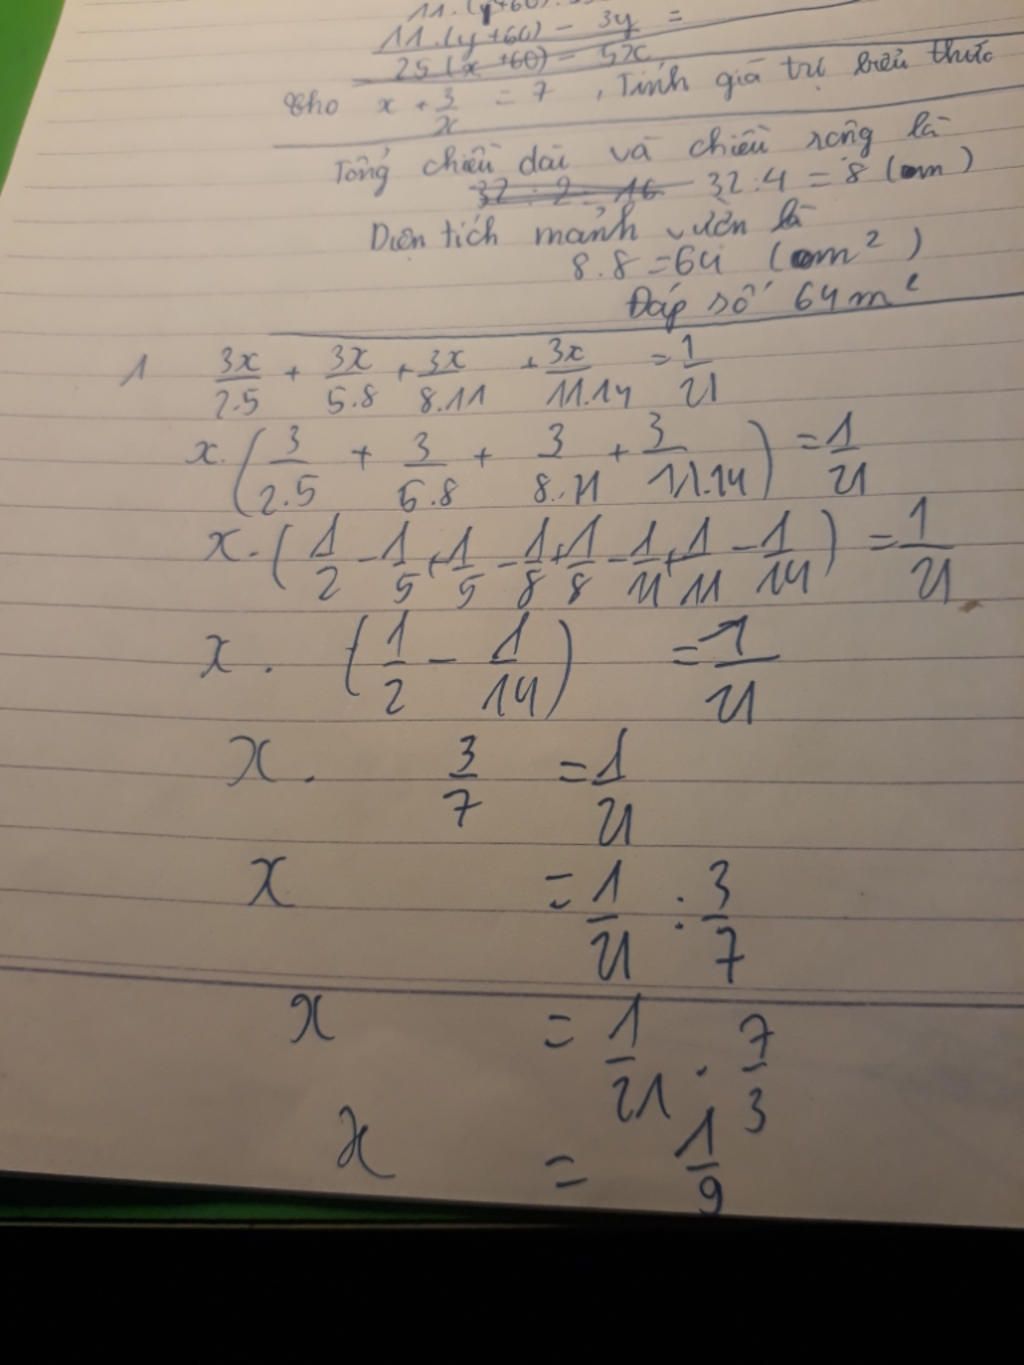 11.(y+60)
11.(y+60) - 3y =
25(x+60) - 5x
Cho x + 3/x = 7, Tính giá trị biểu thức
Tổng chiều dài và chiều rộng là
32 : 2 = 16 32 : 4 = 8 (m)
Diện tích mảnh vườn là
8.8 = 64 (m²)
Đáp số 64m²
1 3x/2.5 + 3x/5.8 + 3x/8.11 + 3x/11.14 = 1/21
x.(3/2.5 + 3/5.8 + 3/8.11 + 3/11.14) = 1/21
x.(1/2 - 1/5 + 1/5 - 1/8 + 1/8 - 1/11 + 1/11 - 1/14) = 1/21
x.(1/2 - 1/14) = 1/21
x. 3/7 = 1/21
x = 1/21 : 3/7
x = 1/21 . 7/3
x = 1/9